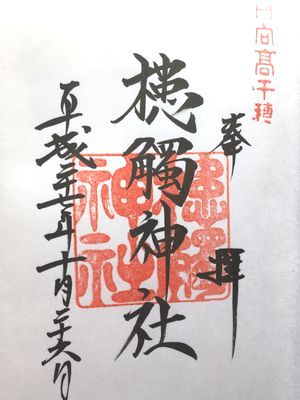 日向高千穂
奉拝
槵觸神社
平成二十七年十月二十六日
槵觸神社